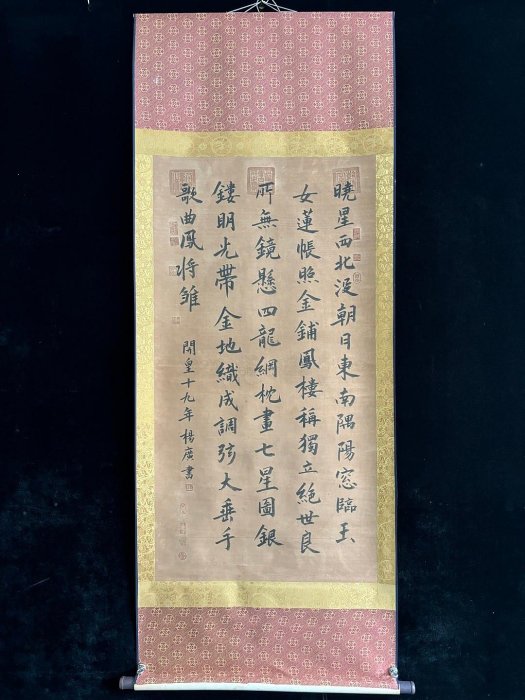 曉星西北没朝日東南隅陽窓臨玉
女蓮帳照金鋪鳳樓稱獨立絕世良
所無鏡懸四龍綱枕畫七星圖銀
鏤明光帶金地織成調弦大垂手
歌曲鳳將雛
開皇十九年楊廣書